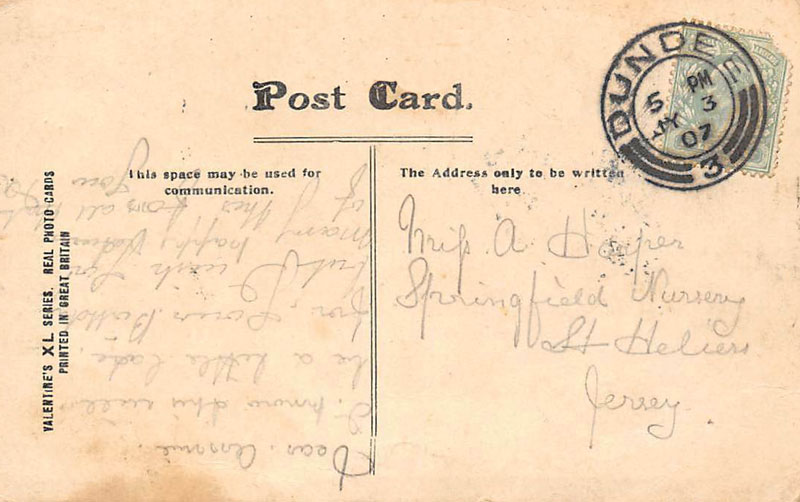 Post Card.
DUNDEE
5 PM
JY 3
07
3
This space may be used for
communication.
The Address only to be written
here.
VALENTINE'S XL SERIES. REAL PHOTO CARDS
PRINTED IN GREAT BRITAIN
Miss A
Springfield Nursery
St Heliers
Jersey
Dear. Annie.
I know this will
be a little late.
for,
but I wish
many happy
of the from all